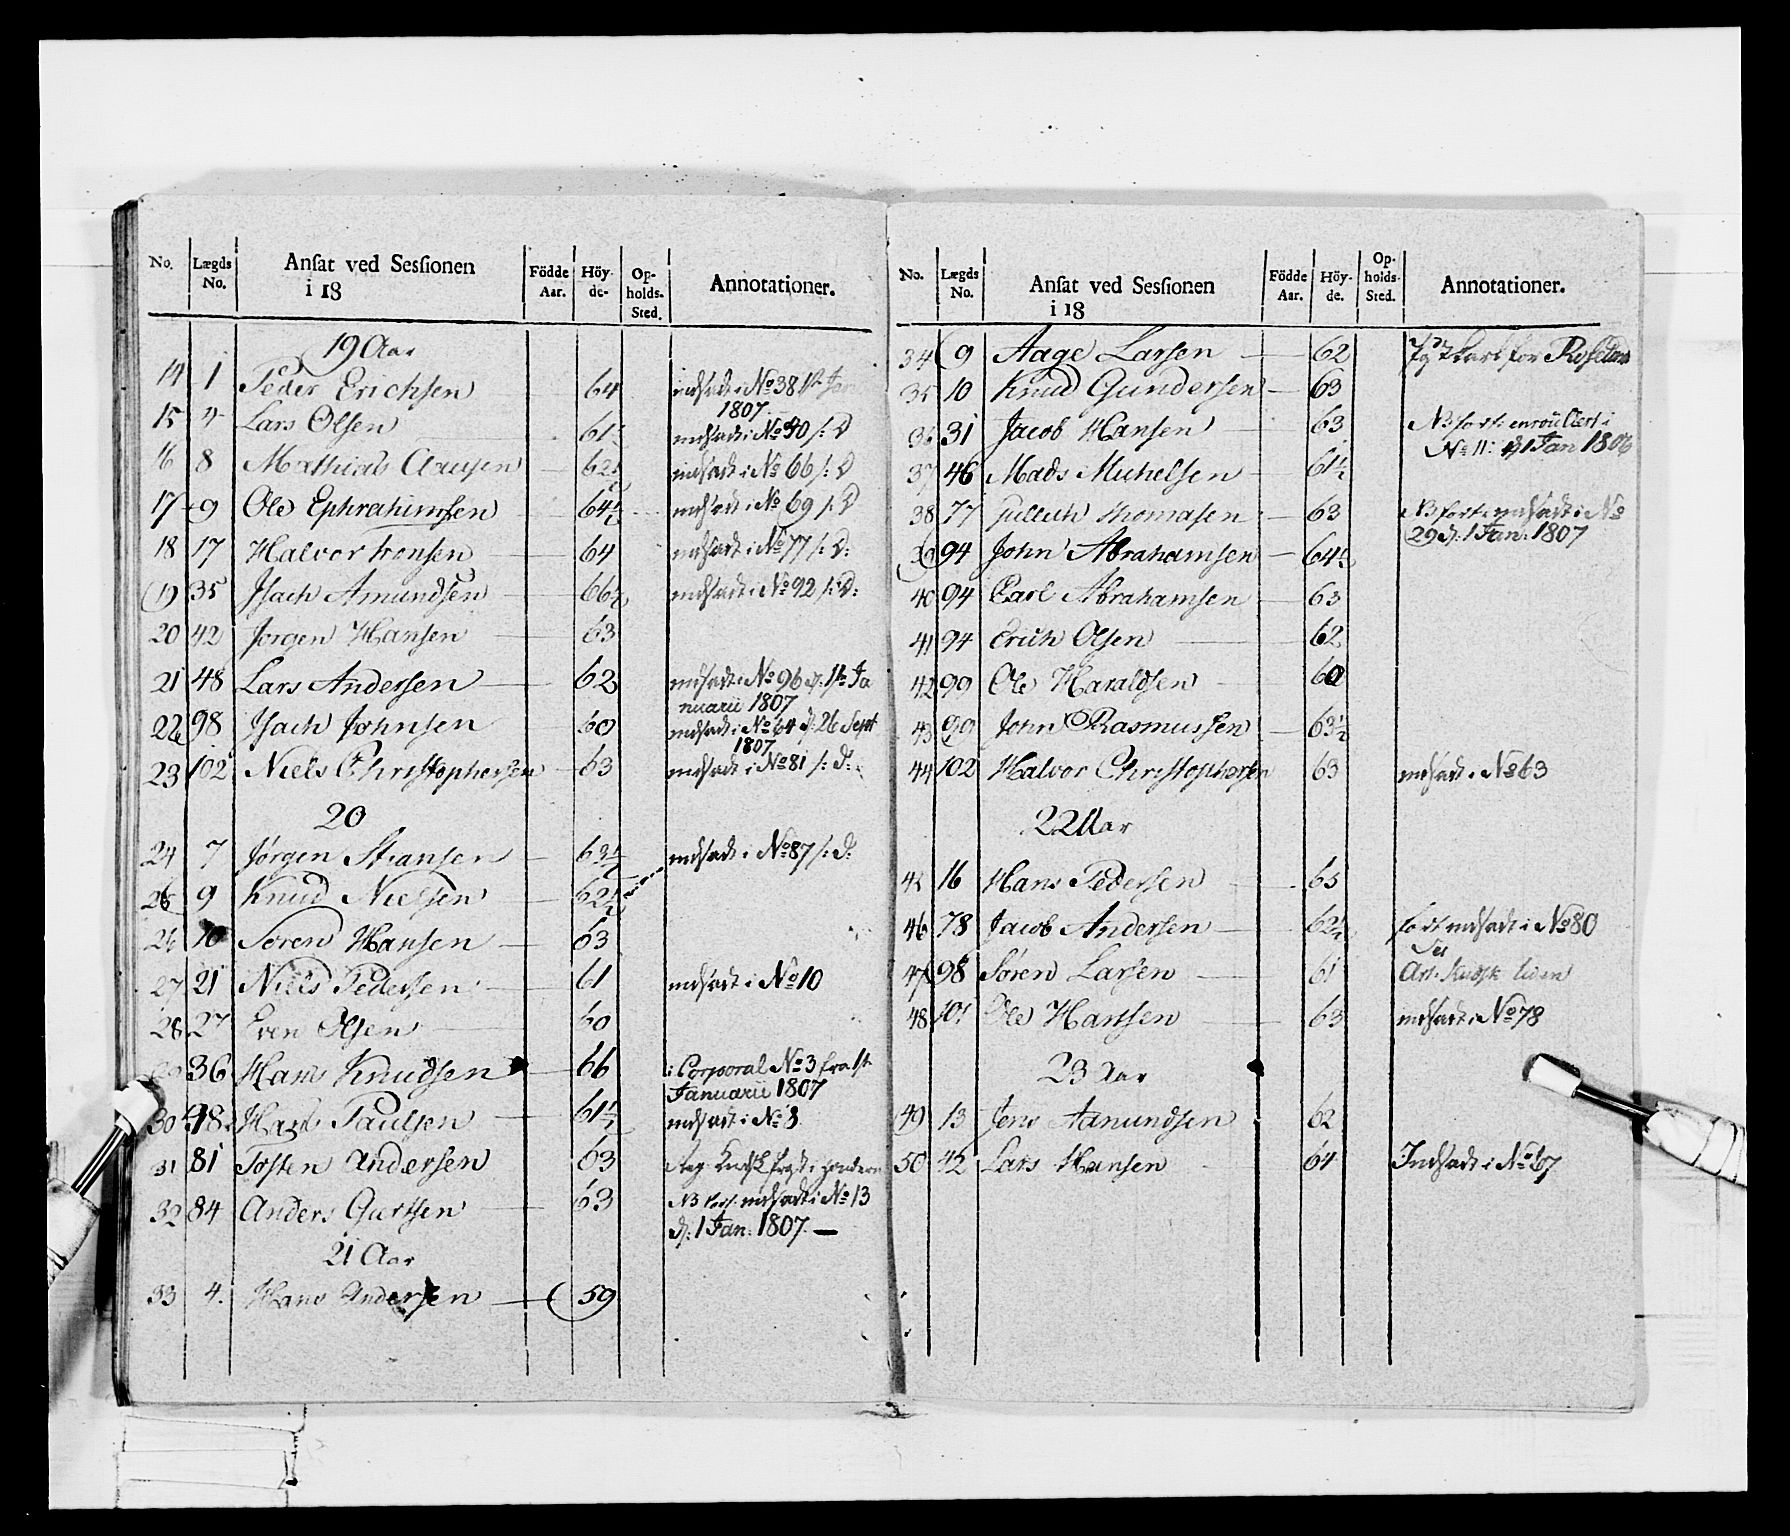 No. Lægds No. Ansat ved Sessionen i 18 Födde Aar. Höyde. Opholds-Sted. Annotationer.
19 Aar
14 1 Peder Erichsen 64 indsadt i No 38 1st Jan
1807
15 4 Lars Olsen 61½ indsadt i No 40 /: D
16 8 Mathias Clausen 62½ indsadt i No 66 /: D
17 9 Ole Ephrahimsen 64½ indsadt i No 69 /: D
18 17 Halvor Ivensen 64 indsadt i No 77 /: D:
19 35 Isach Amundsen 66½ indsadt i No 92 /: D:
20 42 Jørgen Hansen 63
21 48 Lars Andersen 62 indsadt i No 96 d. 1ste Ja
nuarii 1807
22 98 Isach Johnsen 60 indsadt i No 64 d: 26 Sept
1807
23 102 Niels Christophersen 63 indsadt i No 81 /: D:
20
24 7 Jørgen St:ansen 63½ indsadt i No 87 /: D:
25 9 Knud Nielsen 62½
26 10 Søren Hansen 63
27 21 Niels Pedersen 61 indsadt i No 10
28 27 Even Olsen 60
29 36 Hans Knudsen 66 i Corporal No 3 fra 1st
Januarii 1807
30 48 Hans Paulsen 61½ indsadt i No 8
31 81 Tosten Andersen 63
32 84 Anders Gurtsen 63 NB fort indsadt i No 13
d: 1 Jan: 1807. —
21 Aar
33 4. Hans Andersen 59
No. Lægds No. Ansat ved Sessionen i 18 Födde Aar. Höyde. Opholds-Sted. Annotationer.
34 9 Aage Larsen 62 for
35 10 Knud Gundersen 63
36 31 Jacob Hansen 63 NB fort: enroullert i
No 11: d 1 Jan 1806
37 46 Mads Michelsen 61½
38 77 Gullich Thomasen 63 NB fort: indsadt i No
29 d: 1 Jan: 1807
39 94 John Abrahamsen 64½
40 94 Carl Abrahamsen 63
41 94 Erich Olsen 62
42 99 Ole Haraldsen 60
43 99 John Rasmussen 63½
44 102 Halvor Christophersen 63 indsadt i No 63
22 Aar
45 16 Hans Pedersen 63
46 78 Jacob Andersen 62½ fort indsadt i No 80
47 98 Søren Larsen 61
48 101 Ole Hansen 63 indsadt i No 78
23 Aar
49 13 Jens Aamundsen 62
50 42 Lars Hansen 64 Indsadt i No 67